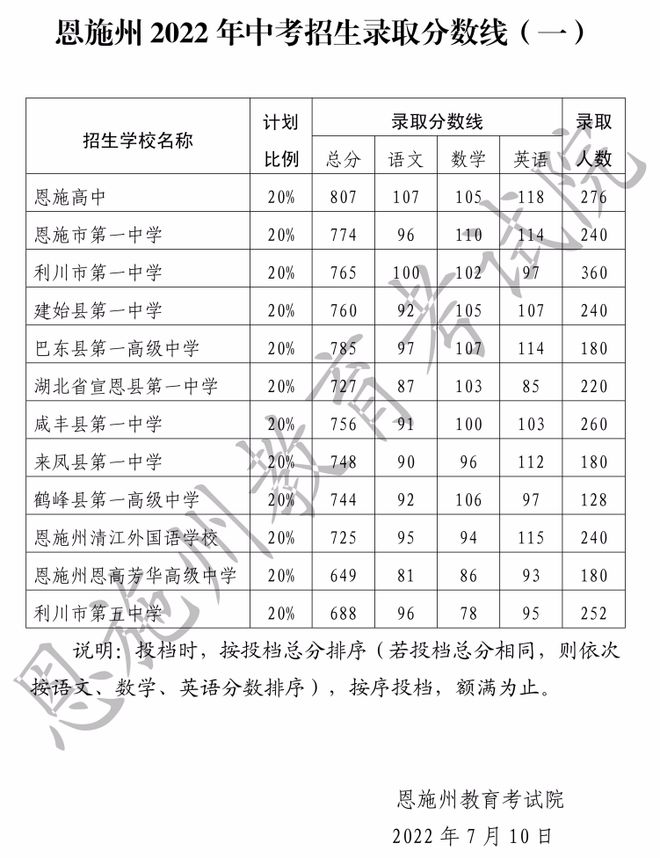 恩施州 2022 年中考招生录取分数线（一）
招生学校名称 计划比例 录取分数线 录取人数
总分 语文 数学 英语
恩施高中 20% 807 107 105 118 276
恩施市第一中学 20% 774 96 110 114 240
利川市第一中学 20% 765 100 102 97 360
建始县第一中学 20% 760 92 105 107 240
巴东县第一高级中学 20% 785 97 107 114 180
湖北省宣恩县第一中学 20% 727 87 103 85 220
咸丰县第一中学 20% 756 91 100 103 260
来凤县第一中学 20% 748 90 96 112 180
鹤峰县第一高级中学 20% 744 92 106 97 128
恩施州清江外国语学校 20% 725 95 94 115 240
恩施州恩高芳华高级中学 20% 649 81 86 93 180
利川市第五中学 20% 688 96 78 95 252
说明：投档时，按投档总分排序（若投档总分相同，则依次
按语文、数学、英语分数排序），按序投档，额满为止。
恩施州教育考试院
2022 年 7 月 10 日
恩施州教育考试院